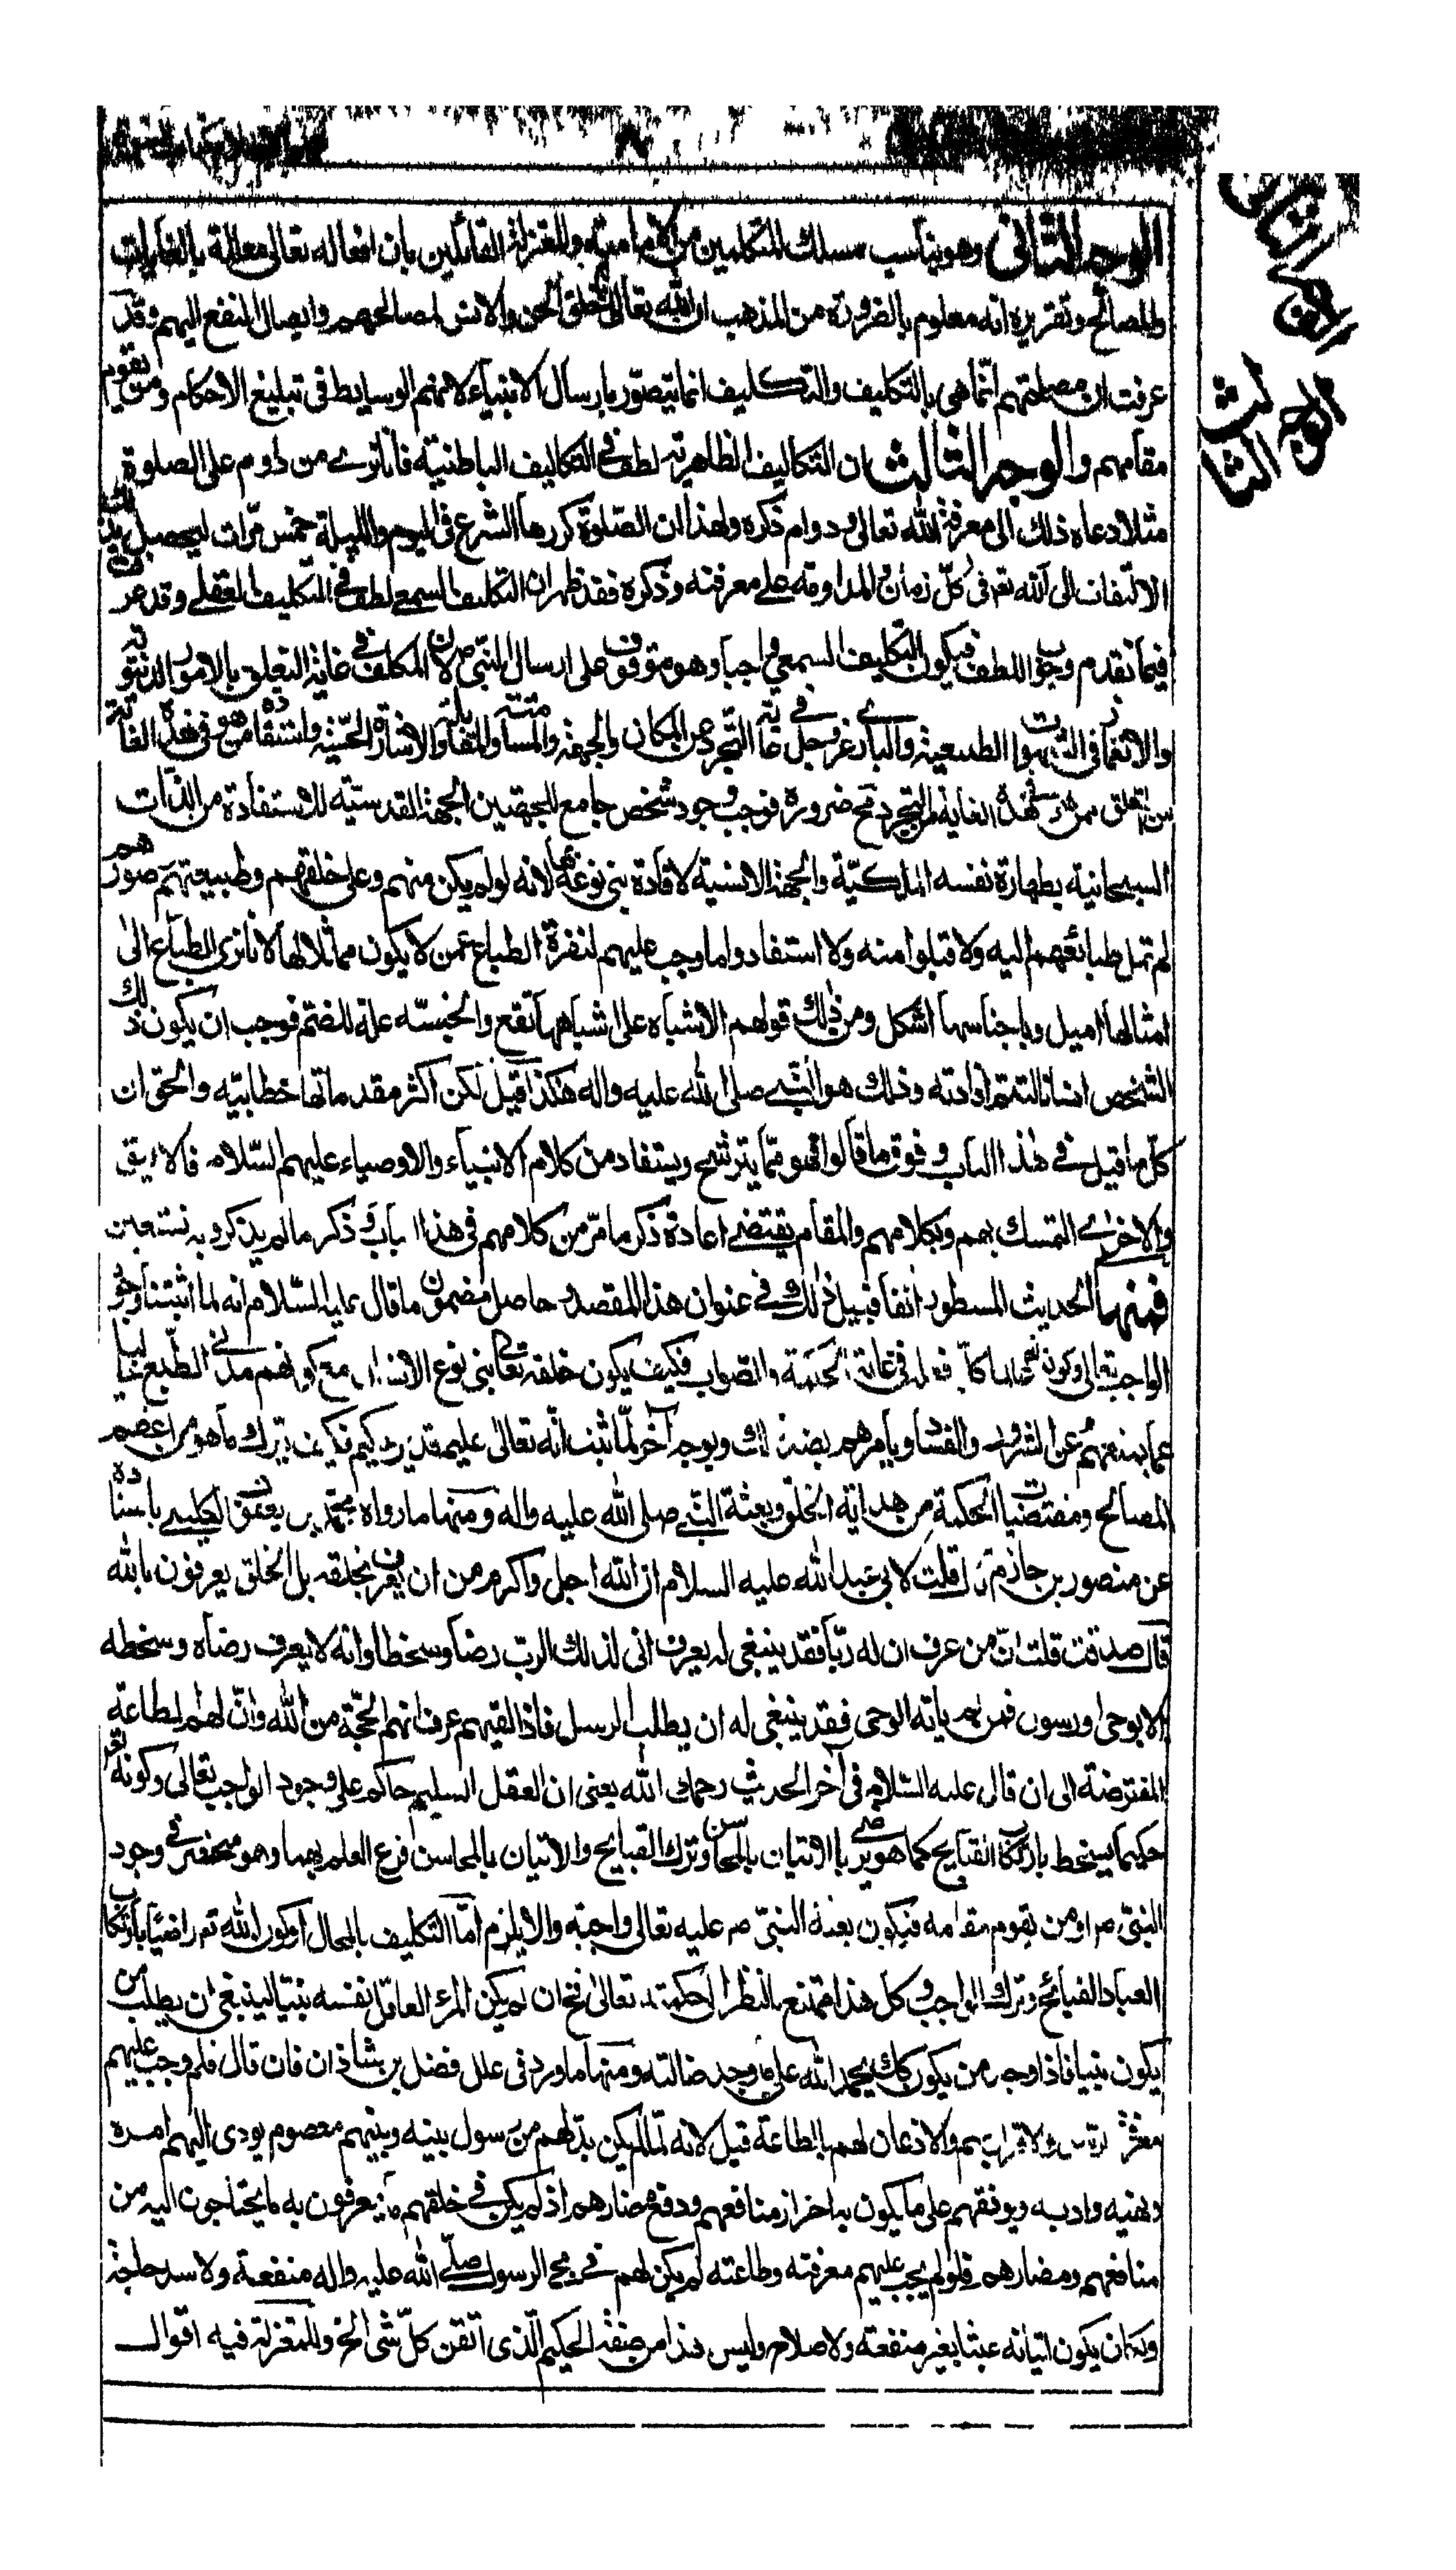 الوجه الثانى وهو يناسب مسلك المتكلمين من الامامية والمعتزلة القائلين بان افعاله تعالى معللة بالغايات
والمصالح وتقريره انه معلوم بالضرورة من المذهب ان الله تعالى خلق الجن والانس لمصالحهم وايصال النفع اليهم وقد
عرفت ان مصلحتهم انما هى بالتكليف والتكليف انما يتصور بارسال الانبياء لانهم الوسايط فى تبليغ الاحكام ومن يقوم
مقامهم والوجه الثالث ان التكاليف الظاهرية لطف فى التكاليف الباطنية فانا نرى من داوم على الصلوة
مثلا دعاه ذلك الى معرفة الله تعالى ودوام ذكره ولهذا ان الصلوة كررها الشرع فى اليوم والليلة خمس مرات ليحصل
الالتفات الى الله تعم فى كل زمان والمداومة على معرفته وذكره فقد ظهر ان التكليف السمعى لطف فى التكليف العقلى وقد عرفت
فيما تقدم وجوب اللطف فيكون التكليف السمعى واجبا وهو متوقف على ارسال النبى ص لان المكلف فى غاية التعلق بالامور الدنيوية
والانغمار فى الشهوات الطبيعية والبارى عز وجل فى غاية التجرد عن المكان والجهة والمساواة والمقابلة والاشارة الحسية واستفادة من هو فى هذه الغاية
من التعلق ممن له هذه الغاية من التجرد ضرورة فوجب وجود شخص جامع للجهتين الجهة القدسية للاستفادة من الذات
السبحانية بطهارة نفسه الملكية والجهة الانسية لافادة بنى نوعه لانه لو لم يكن منهم وعلى خلقهم وطبيعتهم وصورهم
لم تمل طبائعهم اليه ولا قبلوا منه ولا استفادوا ما وجب عليهم لنفرة الطباع عمن لا يكون مماثلا لها لانا نرى الطباع الى
امثالها اميل وباجناسها اشكل ومن ذلك قولهم الاشباه على اشباهها تقع والجنسية علة للضم فوجب ان يكون ذلك
الشخص انسانا لتتم افادته وذلك هو النبى صلى الله عليه واله هكذا قيل لكن اكثر مقدماتها خطابيه والحق ان
كل ما قيل فى هذا الباب وفوق ما قالوا فهو مما يترشح ويستفاد من كلام الانبياء والاوصياء عليهم السلام فالاليق
والاحرى التمسك بهم وبكلامهم والمقام يقتضى اعادة ذكر ما مر من كلامهم فى هذا الباب وذكر ما لم يذكر وبه نستعين
فمنها الحديث المسطور انفا قبيل ذلك فى عنوان هذا المقصد وحاصل مضمون ما قال عليه السلام انه لما اثبتنا وجود
الواجب تعالى وكونه فعله فى غاية الحكمة والصواب فكيف يكون خلقه تعالى بنى نوع الانسان مع كونهم مدنى الطبع خاليا
عما يمنعهم عن الشرور والفساد ويامرهم بضد ذلك وبوجه آخر لما ثبت انه تعالى عليم قدير حكيم فكيف يترك ما هو من اعظم
المصالح ومقتضيات الحكمة من هداية الخلق وبعثة النبى صلى الله عليه واله ومنها ما رواه محمد بن يعقوب الكلينى باسناده
عن منصور بن حازم قال قلت لابى عبد الله عليه السلام ان الله اجل واكرم من ان يعرف بخلقه بل الخلق يعرفون بالله
قال صدقت قلت ان من عرف ان له ربا فقد ينبغى له يعرف انى لذلك الرب رضا وسخطا وانه لا يعرف رضاه وسخطه
الا بوحى او رسول فمن لم ياته الوحى فقد ينبغى له ان يطلب الرسل فاذا لقيهم عرف انهم الحجة من الله وان لهم الطاعة
المفترضة الى ان قال عليه السلام فى آخر الحديث رحمك الله يعنى ان العقل السليم حاكم على وجود الواجب تعالى وكونه تعم
حكيما يسخط بارتكاب القبايح كما هو يرضى بالاتيان بالمحاسن وترك القبايح والاتيان بالمحاسن فرع العلم بهما وهو منحصر فى وجود
النبى ص او من يقوم مقامه فيكون بعثة النبى ص عليه تعالى واجبة والا يلزم اما التكليف بالمحال او كون الله تعم راضيا بارتكاب
العباد القبائح وترك الواجب وكل هذا ممتنع بالنظر الى حكمته تعالى فح ان لم يكن المرء العاقل نفسه نبيا لينبغى ان يطلب من
يكون نبيا فاذا وجد من يكون كك يحمد الله على ما وجد ضالته ومنها ما ورد فى علل فضل بن شاذان فان قال فلم وجب عليهم
معرفة الرسل والاقرار بهم والاذعان لهم بالطاعة قيل لانه لما لم يكن بد لهم من رسول بينه وبينهم معصوم يودى اليهم امره
ونهيه وادبه ويوقفهم على ما يكون به احراز منافعهم ودفع مضارهم اذ لم يكن فى خلقهم ما يعرفون به ما يحتاجون اليه من
منافعهم ومضارهم فلو لم يجب عليهم معرفته وطاعته لم يكن لهم فى مجئ الرسول صلى الله عليه واله منفعة ولا سد حاجة
ولكان يكون اتيانه عبثا بغير منفعته ولا صلاح وليس هذا من صفة الحكيم الذى اتقن كل شئ الخ وللمعتزلة فيه اقوال
الوجه
الثالث